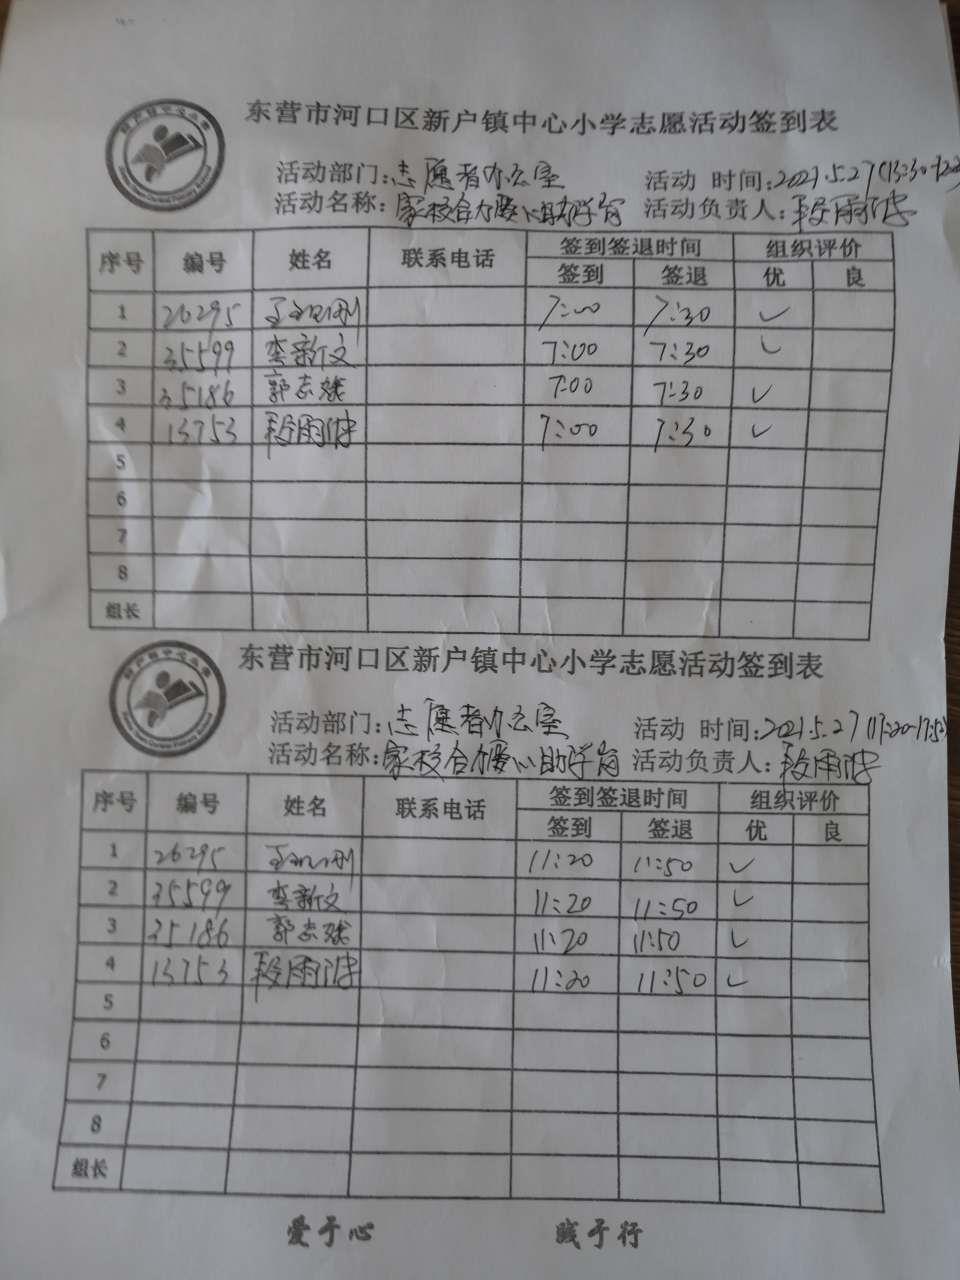 东营市河口区新户镇中心小学志愿活动签到表
活动部门:志愿者办公室 活动 时间:2021.5.27
活动名称:家校合力暖心助学育 活动负责人:段雨
序号 编号 姓名 联系电话 签到签退时间 组织评价
签到 签退 优 良
1 26295 王 刚 7:00 7:30 ✓
2 35599 李新文 7:00 7:30 ✓
3 35186 郭志 7:00 7:30 ✓
4 13753 段雨 7:00 7:30 ✓
5
6
7
8
组长
东营市河口区新户镇中心小学志愿活动签到表
活动部门:志愿者办公室 活动 时间:2021.5.27
活动名称:家校合力暖心助学育 活动负责人:段雨
序号 编号 姓名 联系电话 签到签退时间 组织评价
签到 签退 优 良
1 26295 王 刚 11:20 11:50 ✓
2 35599 李新文 11:20 11:50 ✓
3 35186 郭志 11:20 11:50 ✓
4 13753 段雨 11:20 11:50 ✓
5
6
7
8
组长
爱于心 践于行